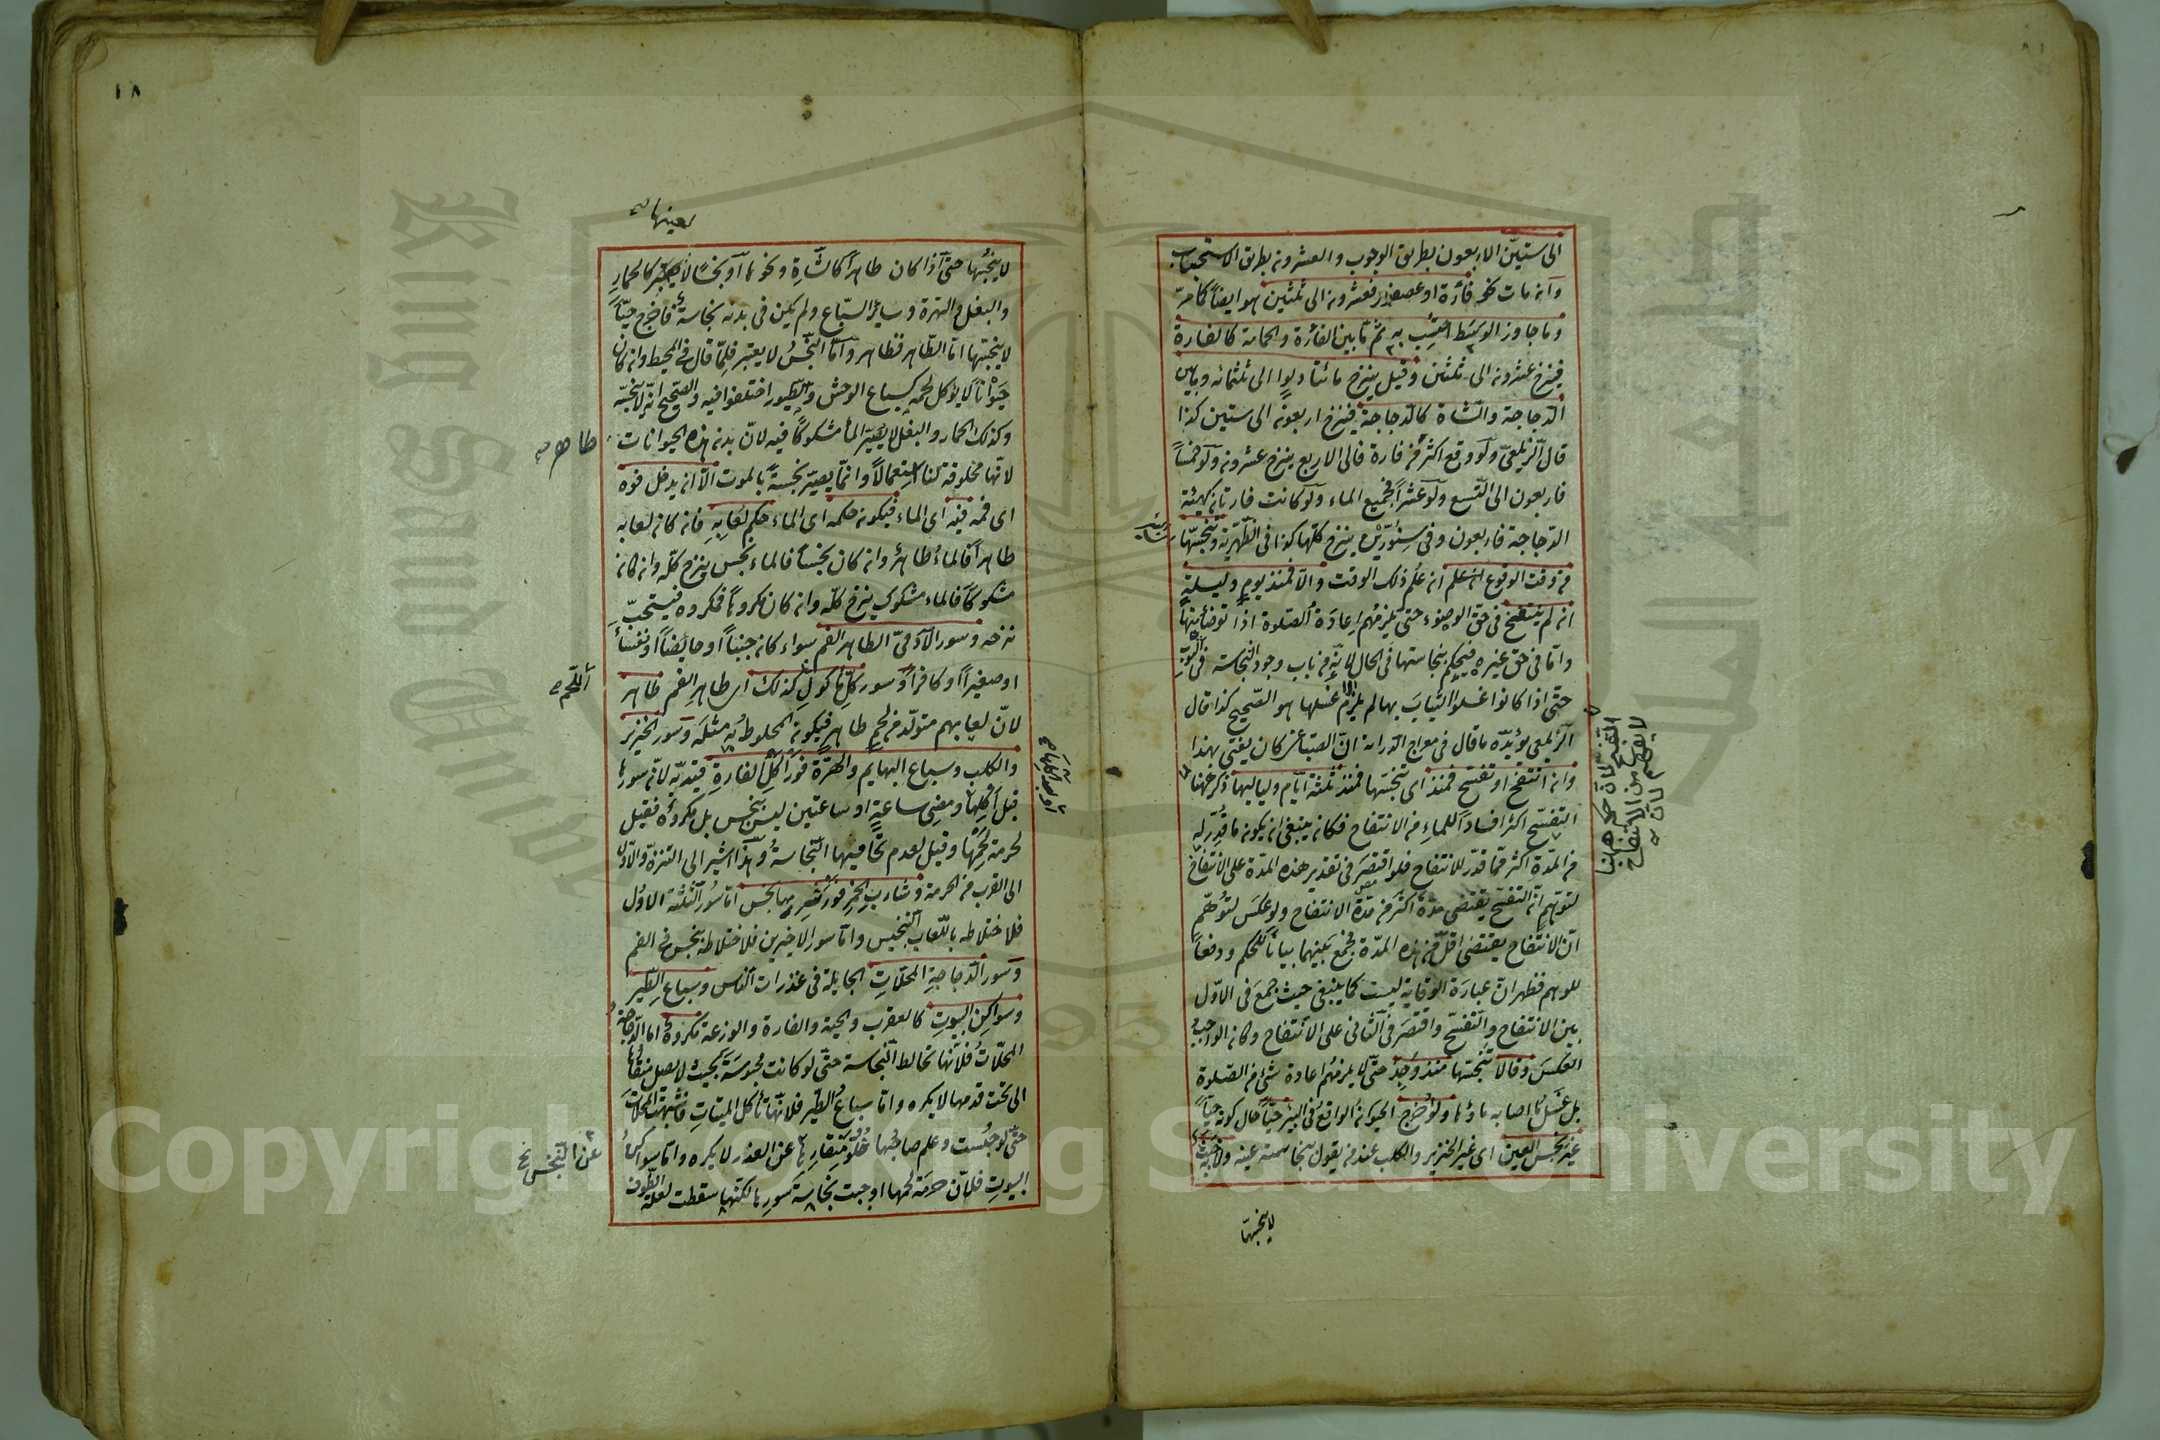 الى ستين الاربعون بطريق الوجوب والعشرون بطريق الاستحباب
وان مات نحو فأرة او عصفور فعشرون الى ثلثين هو ايضا كما مر
وما جاوز الوسط احتسب به ثم ما بين الفأرة والحمامة كالفارة
فينزح عشرون الى ثلثين وقيل ينزح مائتا دلو الى ثلثمائه وما بين
الدجاجة والشاة كالدجاجة فينزح اربعون الى ستين كذا
قال الزيلعي ولو وقع اكثر من فارة فالى الاربع ينزح عشرون ولو خمسا
فاربعون الى التسع ولو عشرا فجميع الماء ولو كانت فارتان كهيئة
الدجاجة فاربعون وفي سنورين ينزح كلها كذا في الظهيرية وتنجسها
من وقت الوقوع ان علم ذلك الوقت والا فمنذ يوم وليلة
ان لم ينتفخ في حق الوضوء حتى يلزمهم اعادة الصلوة اذا توضأ منها
واما في حق غيره فيحكم بنجاستها في الحال لانه من باب وجود النجاسة في الثوب
حتى اذا كانوا غسلوا الثياب بها لم يلزم غسلها هو الصحيح كذا قال
الزيلعي يؤيده ما قال في معراج الدراية ان الصباغي كان يفتي بهذا
وان انتفخ او تفسخ فمنذ اى تنجسها فمنذ ثلثة ايام ولياليها ذكر ههنا
التفسخ اكثر افسادا للماء من الانتفاخ فكان ينبغي ان يكون ما قدر له
من المدة اكثر مما قدر للانتفاخ فلو اقتصر في تقدير هذه المدة على الانتفاخ
لتوهم ان التفسخ يقتضي مدة اكثر من مدة الانتفاخ ولو عكس لتوهم
ان الانتفاخ يقتضي اقل من هذه المدة فجمع بينهما بيانا للحكم ودفعا
للوهم فظهر ان عبارة الوقاية ليست كما ينبغي حيث جمع في الاول
بين الانتفاخ والتفسخ واقتصر في الثاني على الانتفاخ وكان الواجب
العكس وقالا تنجسها منذ وجد حتى لا يلزمهم اعادة شئ من الصلوة
بل غسل ما اصابه ماؤها ولو خرج الحيوان الواقع في البئر حيا حال كونه حيا
غير نجس العين اى غير الخنزير والكلب عند من يقول بنجاسة عينه ولا به خبث
لا ينجسها
لا ينجسها حتى اذا كان طاهرا كالشاة ونحوها او نجسا لا يعتبر كالحمار
والبغل والهرة وسائر السباع ولم يكن في بدنه نجاسة فاخرج حيا
لا ينجسها اما الطاهر فظاهر واما النجس لا يعتبر فلما قال في المحيط وان كان
حيوانا لا يؤكل لحمه كسباع الوحش والطيور اختلفوا فيه والصحيح انه لا ينجسه
وكذلك الحمار والبغل لا يصير الماء مشكوكا فيه لان بدن هذه الحيوانات
طاهر
لانها مخلوقة لنا استعمالا وانما يصير نجسة بالموت الا ان يدخل فوه
اى فمه فيه اى الماء فيكون حكمه اى الماء حكم لعابه فان كان لعابه
طاهرا فالماء طاهر وان كان نجسا فالماء نجس وينزح كله وان كان
مشكوكا فالماء مشكوك ينزح كله وان كان مكروها فمكروه فيستحب
نزحه وسور الآدمي الطاهر الفم سواء كان جنبا او حايضا او نفساء
او صغيرا او كافرا وسور كل ماكول كذلك اى طاهر الفم طاهر
لان لعابهم متولد من لحم طاهر فيكون المخلوط به مثله وسور الخنزير
والكلب وسباع البهايم والهرة فور اكل الفارة قيد به لان سورها
قبل اكلها ومضى ساعة او ساعتين ليس بنجس بل مكروه فقيل
لحرمة لحمها وقيل لعدم تحاميها النجاسة وهذا اشير الى التنزه والاول
الى القرب من الحرمة وشارب الخمر فور شربها نجس اما سور الثلثة الاول
فلاختلاطه باللعاب النجس واما سور الاخيرين فلاختلاطه بنجس في الفم
وسور الدجاجة المخلات الجايلة في عذرات الناس وسباع الطير
وسواكن البيوت كالعقرب والحية والفارة والوزغة مكروه اما الدجاجة
المخلات فلانها تخالط النجاسة حتى لو كانت محبوسة بحيث لا يصل منقارها
الى تحت قدمها لا يكره واما سباع الطير فلانها تأكل الميتات فاشبهت المخلات
حتى لو حبست وعلم صاحبها خلو منقارها عن العذر لا يكره واما سواكن
عن النجس
البيوت فلان حرمة لحمها اوجبت نجاسة سورها لكنها سقطت لعلة الطوف